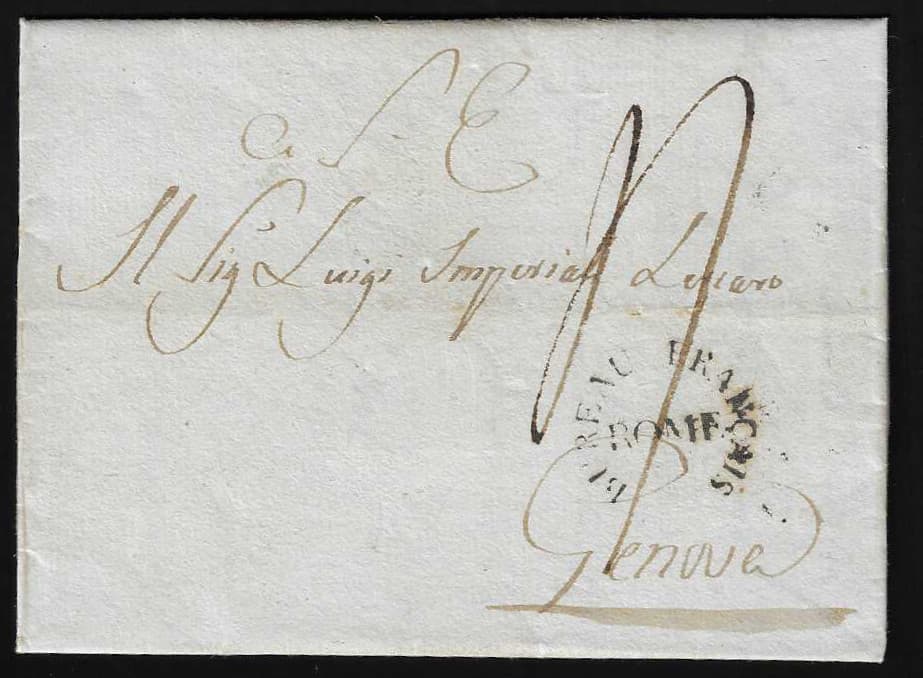 a S. E.
Il Sig.r Luigi Imperial Lercaro
BUREAU FRANCAIS
ROME
Genova